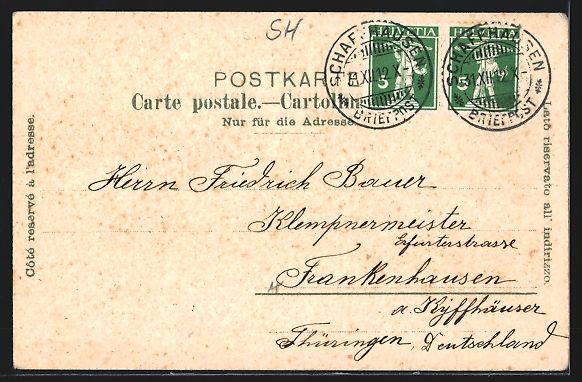 SH
HELVETIA HELVETIA
5 5
SCHAFFHAUSEN SCHAFFHAUSEN
31.XII.12 X- 31.XII.12 X-
BRIEFPOST BRIEFPOST
POSTKARTE
Carte postale.—Cartolina
Nur für die Adresse
Côté reservé à l'adresse.
Lato riservato all' indirizzo.
Herrn Friedrich Bauer
Klempnermeister
Erfurterstrasse
Frankenhausen
a. Kyffhäuser
Thüringen, Deutschland